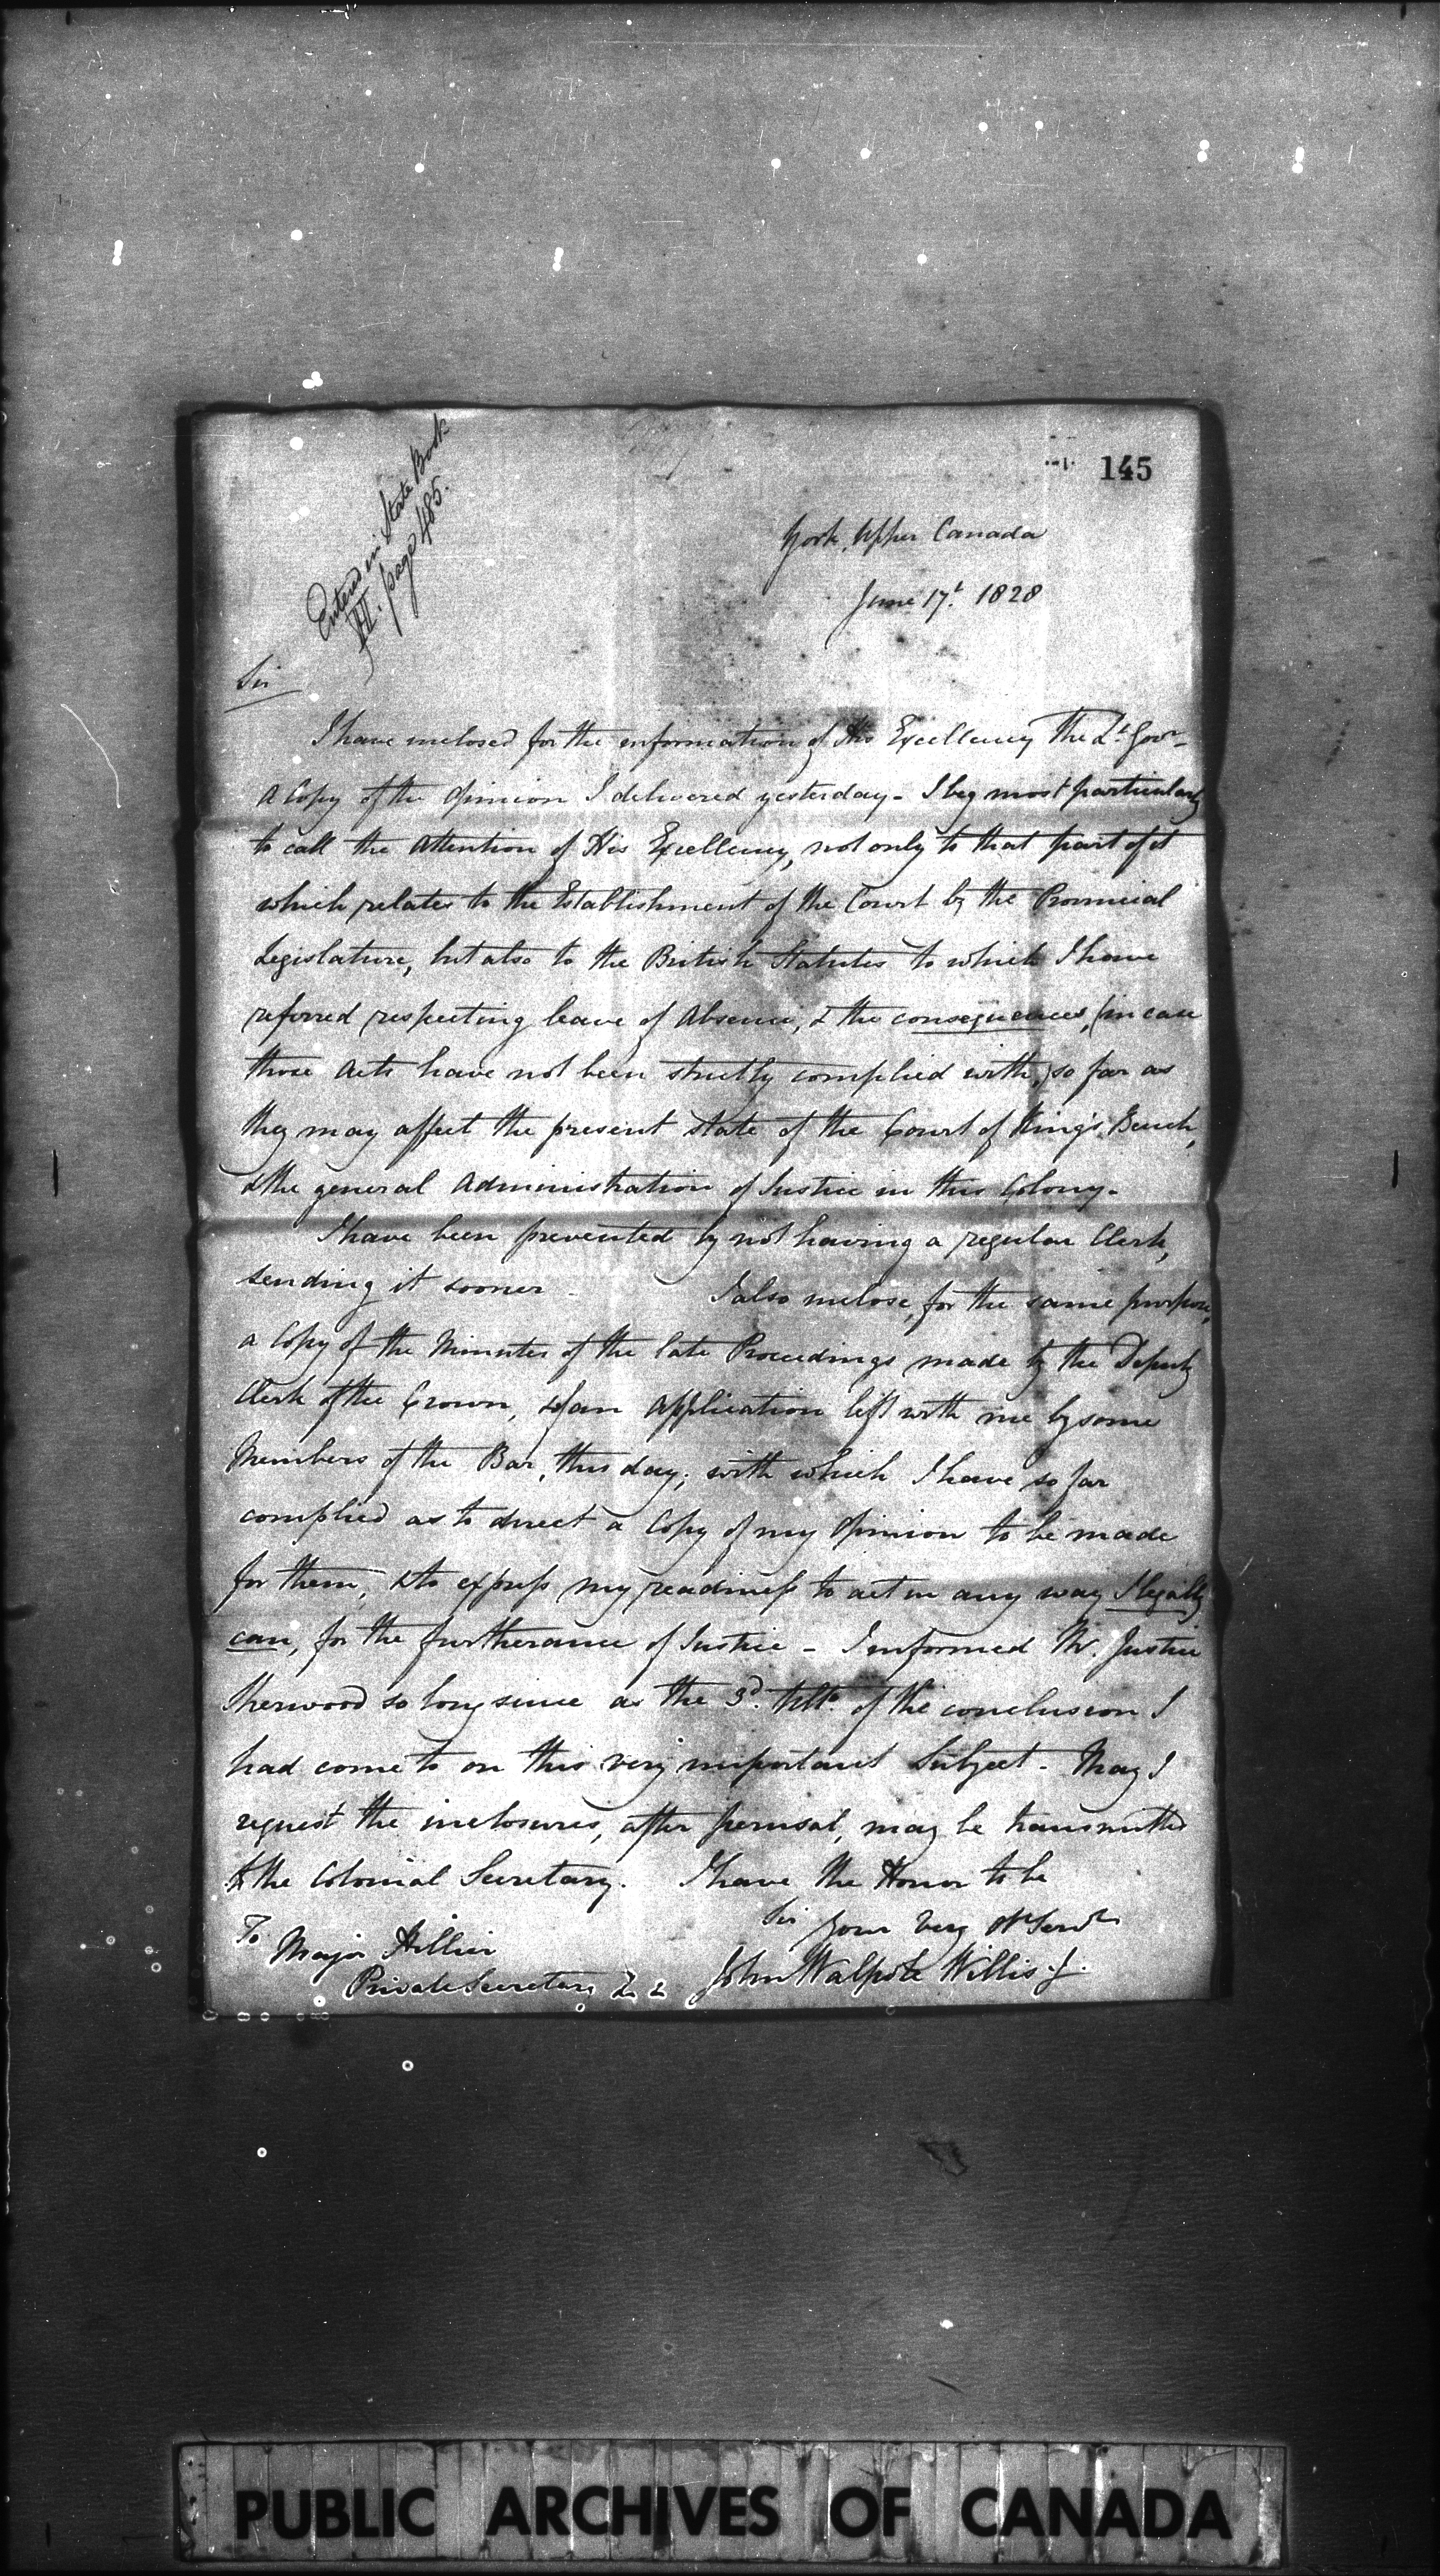 145
Entered in State Book
VII. page 485.
York, Upper Canada
June 17t. 1828
Sir
I have inclosed for the information of His Excellency The Lt. Govr.
a Copy of the Opinion I delivered yesterday - I beg most particularly
to call the Attention of His Excellency, not only to that part of it
which relates to the Establishment of the Court by the Provincial
Legislature, but also to the British Statutes to which I have
referred respecting leave of Absence, & the consequences, (in case
those Acts have not been strictly complied with,) so far as
they may affect the present state of the Court of King's Bench,
& the general Administration of Justice in this Colony.
I have been prevented by not having a regular Clerk,
sending it sooner - I also inclose, for the same purpose,
a Copy of the Minutes of the late Proceedings made by the Deputy
Clerk of the Crown, & of an Application left with me by some
Members of the Bar, this day; with which I have so far
complied as to direct a Copy of my Opinion to be made
for them, & to express my readiness to act in any way I legally
can, for the furtherance of Justice - I informed Mr. Justice
Sherwood so long since as the 3d. Ulto. of the conclusion I
had come to on this very important Subject - May I
request the inclosures, after perusal, may be transmitted
to the Colonial Secretary. I have the Honor to be
Sir Your Very Ob. Servt.
To Major Hillier
John Walpole Willis. J.
Private Secretary &c &c
PUBLIC ARCHIVES OF CANADA